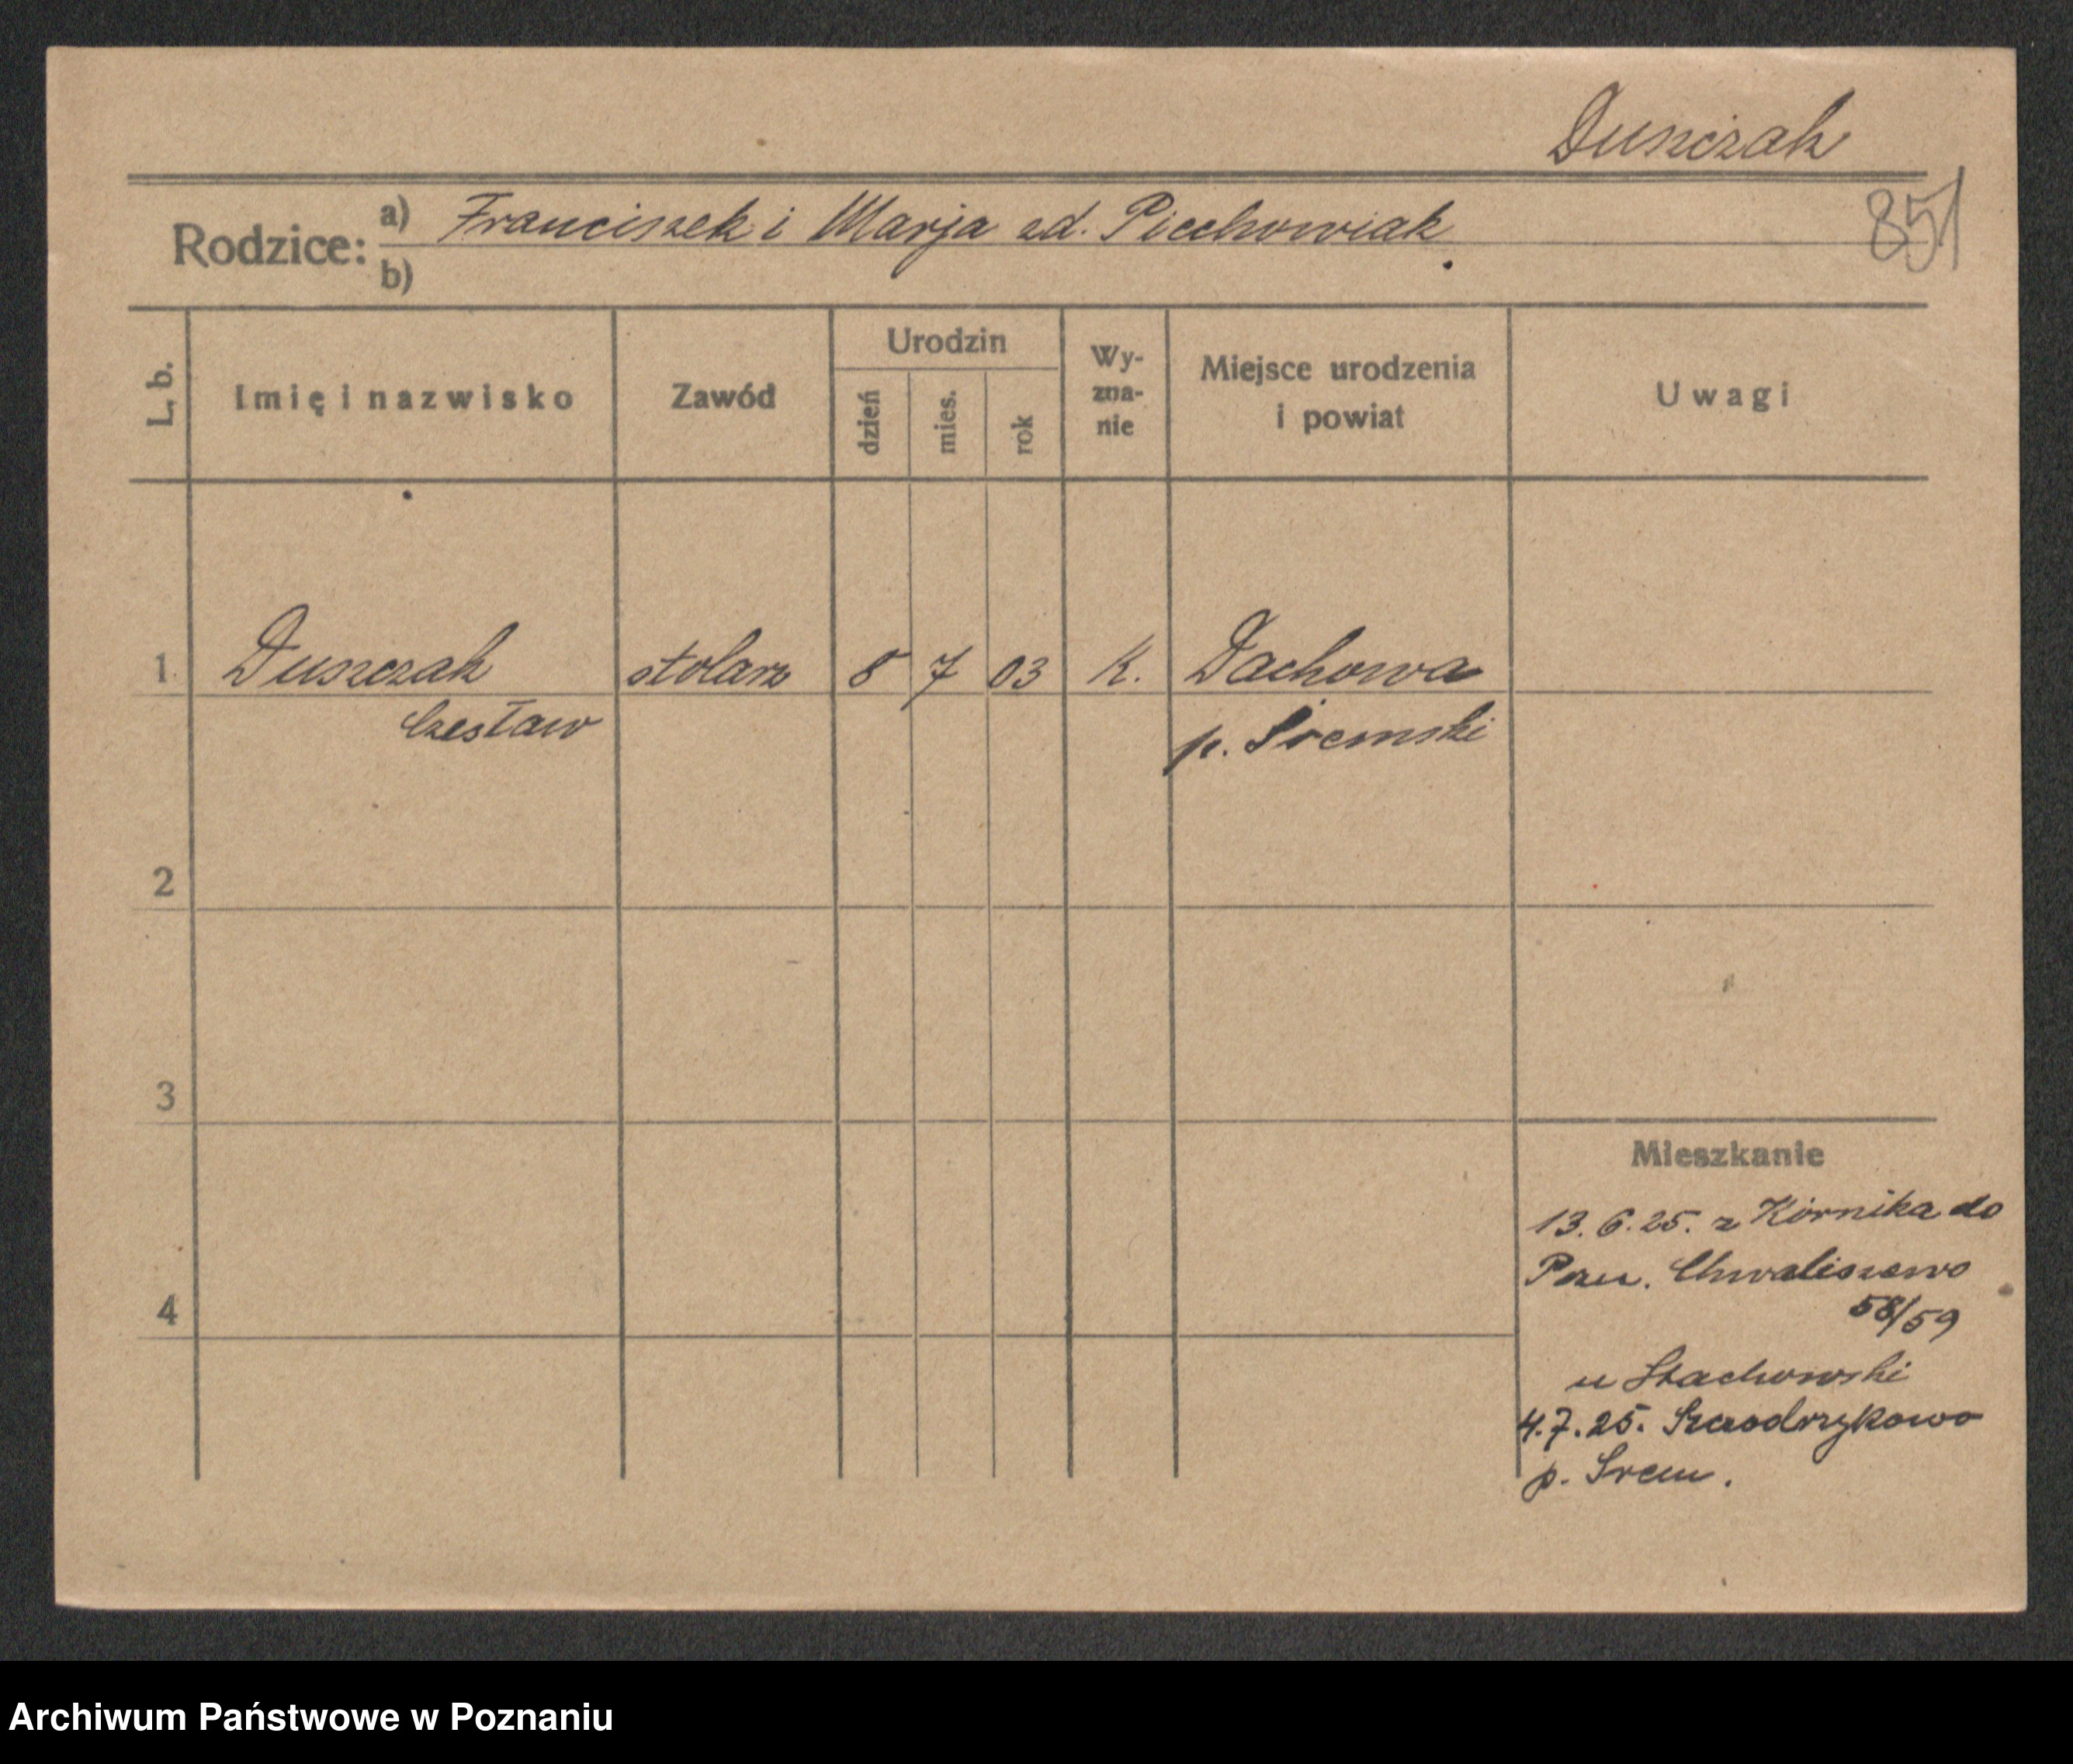 Duszczak
Rodzice: a) Franciszek i Marja zd. Piechowiak 851
b)
L. b. Imię i nazwisko Zawód Urodzin dzień mies. rok Wyznanie Miejsce urodzenia i powiat Uwagi
1 Duszczak stolarz 8 7 03 K. Dachowa
Czesław p. Śremski
2
3
Mieszkanie
13.6.25. z Kórnika do
Pozn. Chwaliszewo
58/59
4
u Stachowski
4.7.25. Szczodrzykowo
p. Śrem.
Archiwum Państwowe w Poznaniu